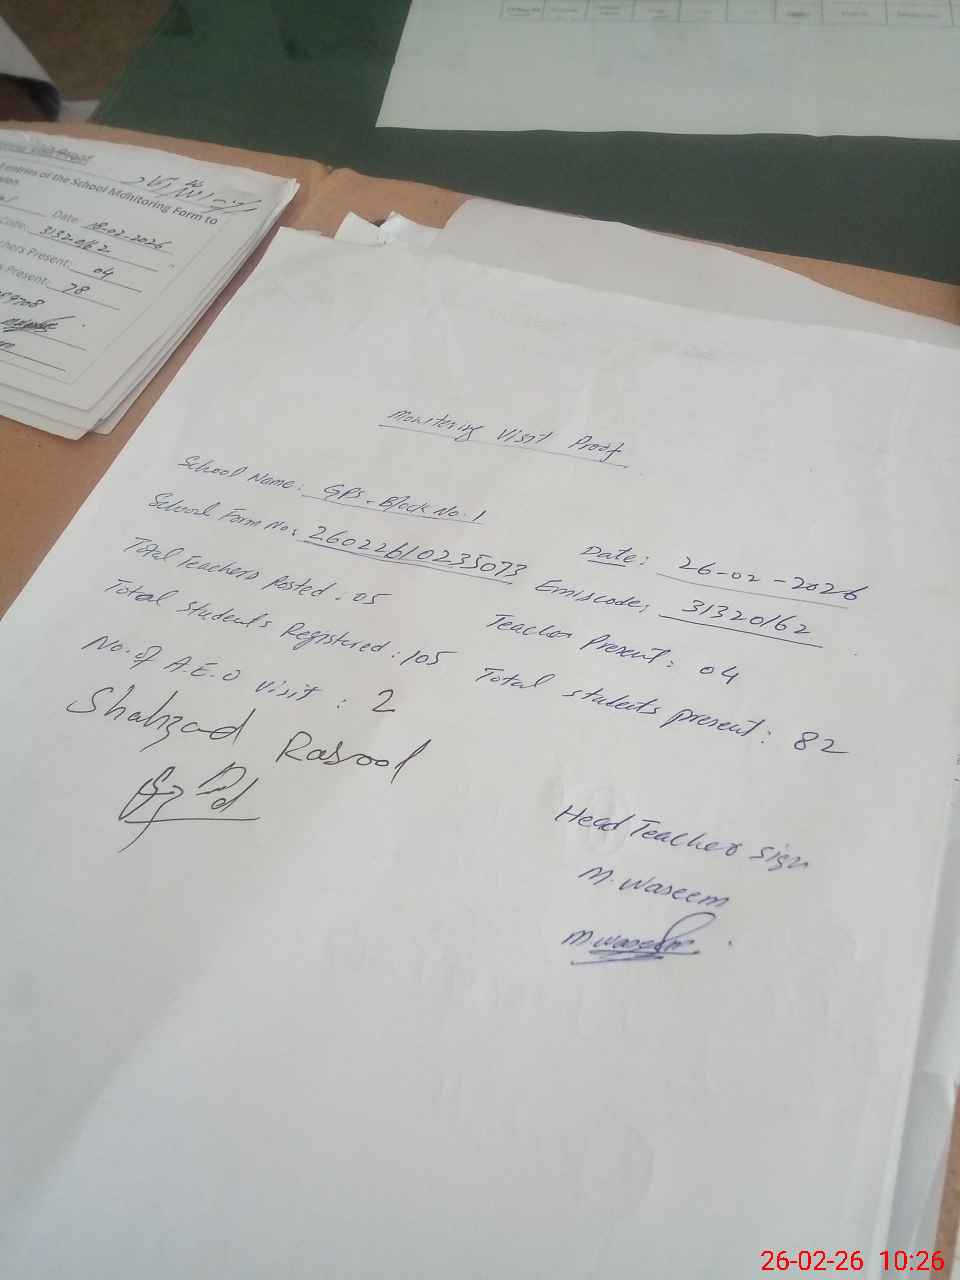 Visit Proof
entries of the School Monitoring Form to
Date: 18-02-2026
Code: 31320162
chers Present: 04
s Present: 78
Monitoring Visit Proof
School Name: GPS - Block No. 1
Date: 26-02-2026
School Form No: 26022610235073
Emiscode: 31320162
Total Teachers Posted: 05
Teacher Present: 04
Total Students Registered: 105
Total students present: 82
No. of A.E.O visit: 2
Shahzad Rasool
Head Teacher Sign
M. Waseem
M waseem
26-02-26 10:26